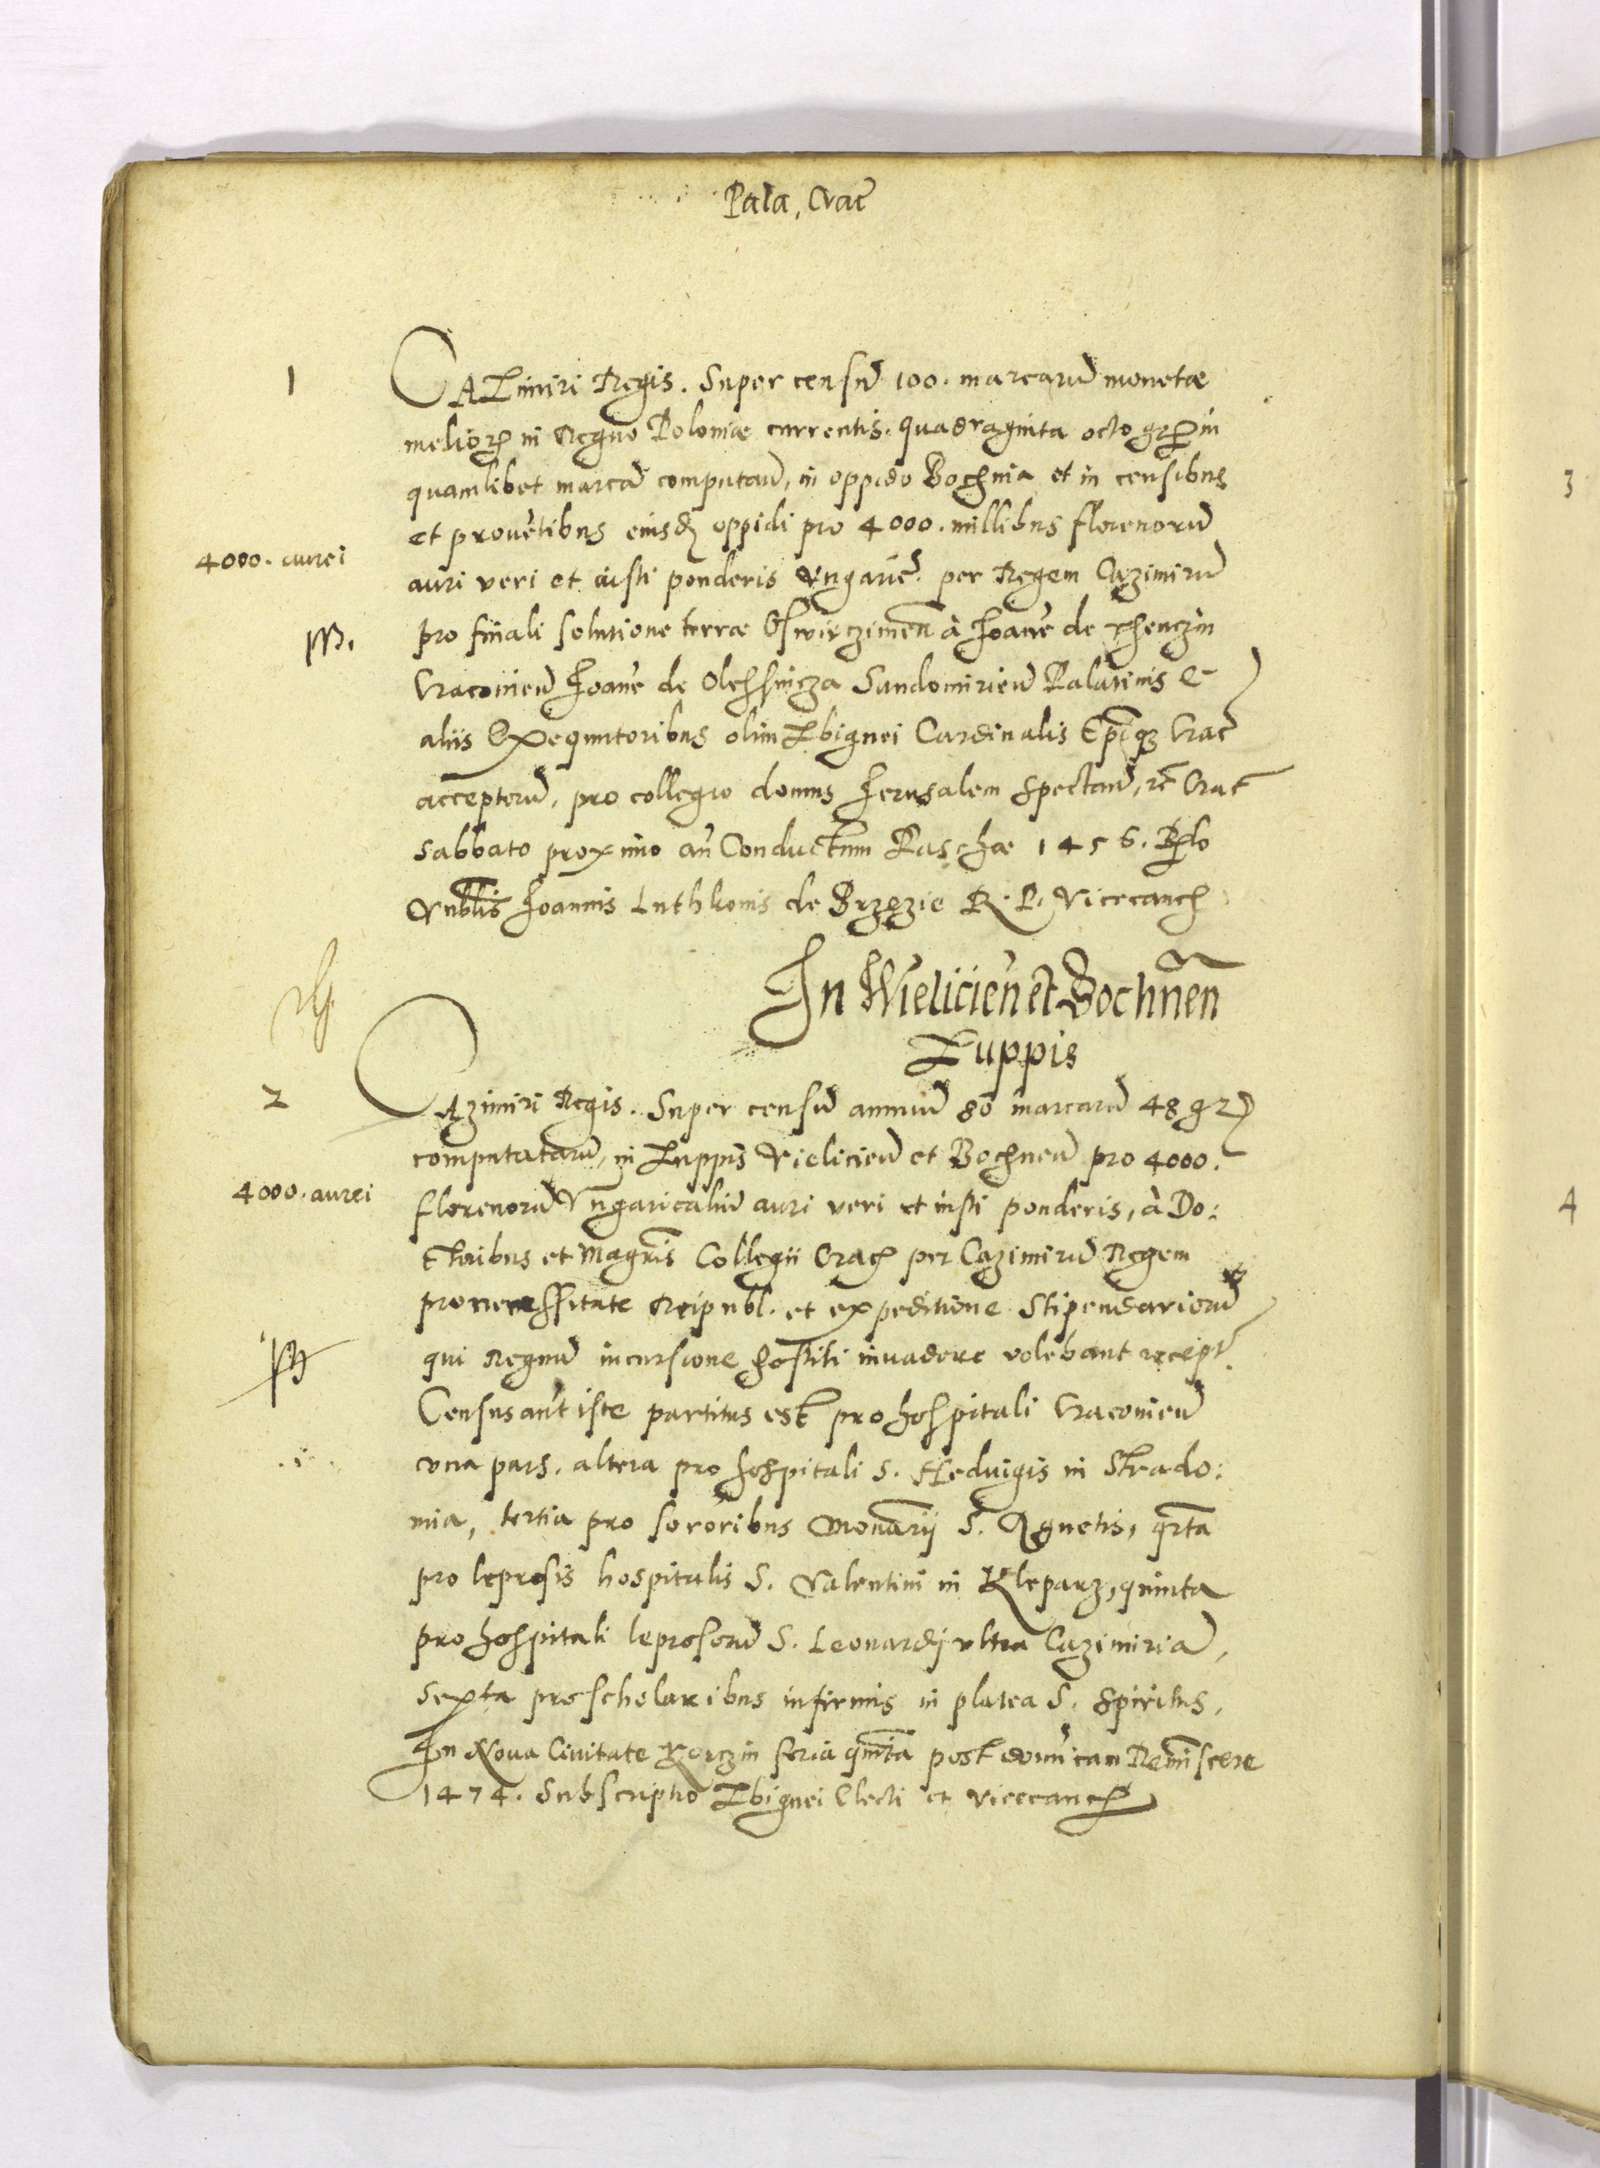 Pala, Crac̄
1
CAZimiri Regis. Super censu̅ 100. marcaru̅ monetæ
melior̨ in Regno Poloniæ currentis. quadraginta octo gr̅ in
quamlibet marca̅ computan̅, in oppido Bochnia et in censibus
et prove̅tibus eiusd̨ oppidi pro 4000. millibus florenoru̅
4000. aurei
auri veri et iusti ponderis Vngarie̅. per Regem Cazimiru̅
pro finali solutione terræ Oswięczimen̅ à Joan̅e de Thenczin
Cracovien̅ Joan̅e de Olessnicza Sandomirien̅ Palatinis &
aliis Exequutoribus olim Zbignei Cardinalis Ep̅iq3 Crac̅
acceptoru̅, pro collegio domus Jerusalem spectan̅, Crac̅
sabbato proximo an̅ Conductum Paschæ 1456.
Joannis Luthkonis de Brzezie R. P. Vicecanc̨
In Wielicien̅ et Bochnen̅
Zuppis
2
CAzimiri Regis. Super censu̅ annuu̅ 80 marcaru̅ 48 gr̅
computataru̅, in Zuppis Vielicien̅ et Bochnen̅ pro 4000.
4000. aurei
florenoru̅ Vngaricaliu̅ auri veri et iusti ponderis, à Do:
ctoribus et Magr̅is Collegii Crac̨ per Cazimiru̅ Regem
pro necessitate Reipubl. et expeditione Stipendarioru̅
qui Regnu̅ incursione hostili invadere volebant recept̅
Census aut̅ iste partitus est pro hospitali Cracovien̅
una pars. altera pro hospitali S. Heduigis in Strado:
mia, tertia pro sororibus Monar̅ij S. Agnetis, qr̅ta
pro leprosis hospitalis S. Valentini in Kleparz, quinta
pro hospitali leprosoru̅ S. Leonardij ultra Cazimiria̅,
Sexta pro scholaribus infirmis in platea S. Spiritus,
In Nova Civitate Korczin feria qui̅ta post domi̅ican Remi̅scere
1474. Subscriptio Zbignei Electi et vicecanc̨
3
4